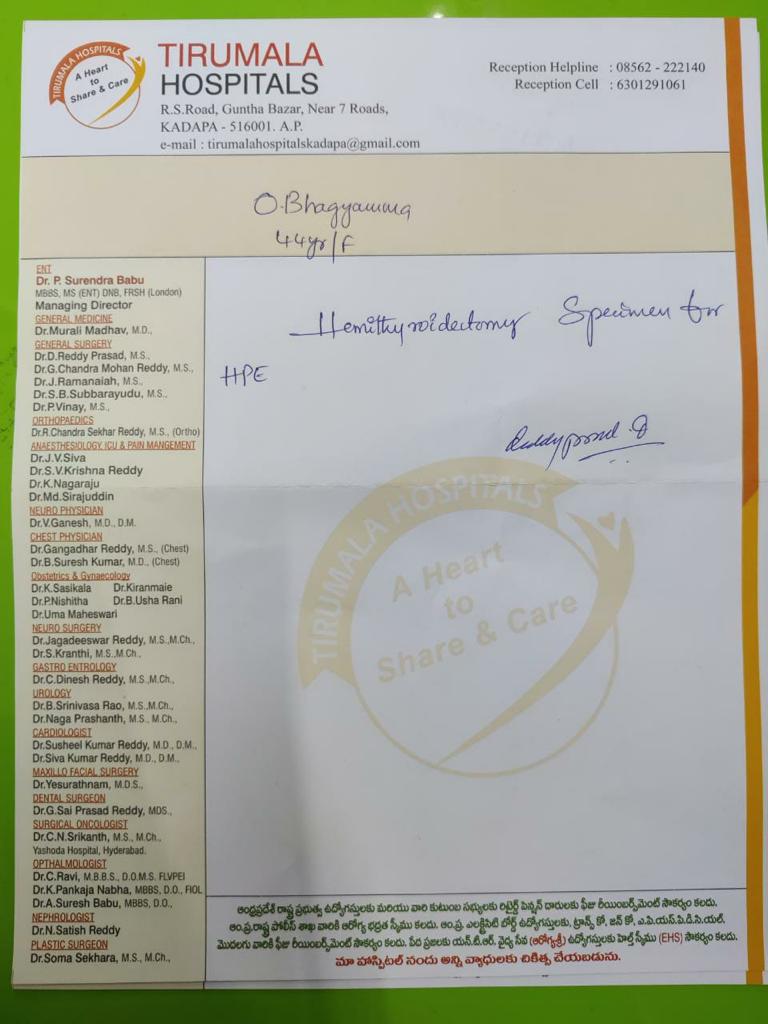 TIRUMALA HOSPITALS
A Heart
to
Share & Care
TIRUMALA
HOSPITALS
R.S.Road, Guntha Bazar, Near 7 Roads,
KADAPA - 516001. A.P.
e-mail : tirumalahospitalskadapa@gmail.com
Reception Helpline : 08562 - 222140
Reception Cell : 6301291061
O.Bhagyamma
44yr/F
ENT
Dr. P. Surendra Babu
MBBS, MS (ENT) DNB, FRSH (London)
Managing Director
GENERAL MEDICINE
Dr.Murali Madhav, M.D.,
GENERAL SURGERY
Dr.D.Reddy Prasad, M.S.,
Dr.G.Chandra Mohan Reddy, M.S.,
Dr.J.Ramanaiah, M.S.,
Dr.S.B.Subbarayudu, M.S.,
Dr.P.Vinay, M.S.,
ORTHOPAEDICS
Dr.R.Chandra Sekhar Reddy, M.S., (Ortho)
ANAESTHESIOLOGY, ICU & PAIN MANGEMENT
Dr.J.V.Siva
Dr.S.V.Krishna Reddy
Dr.K.Nagaraju
Dr.Md.Sirajuddin
NEURO PHYSICIAN
Dr.V.Ganesh, M.D., D.M.
CHEST PHYSICIAN
Dr.Gangadhar Reddy, M.S., (Chest)
Dr.B.Suresh Kumar, M.D., (Chest)
Obstetrics & Gynaecology
Dr.K.Sasikala Dr.Kiranmaie
Dr.P.Nishitha Dr.B.Usha Rani
Dr.Uma Maheswari
NEURO SURGERY
Dr.Jagadeeswar Reddy, M.S.,M.Ch.,
Dr.S.Kranthi, M.S.,M.Ch.,
GASTRO ENTROLOGY
Dr.C.Dinesh Reddy, M.S.,M.Ch.,
UROLOGY
Dr.B.Srinivasa Rao, M.S.,M.Ch.,
Dr.Naga Prashanth, M.S., M.Ch.,
CARDIOLOGIST
Dr.Susheel Kumar Reddy, M.D., D.M.,
Dr.Siva Kumar Reddy, M.D., D.M.,
MAXILLO FACIAL SURGERY
Dr.Yesurathnam, M.D.S.,
DENTAL SURGEON
Dr.G.Sai Prasad Reddy, MDS.,
SURGICAL ONCOLOGIST
Dr.C.N.Srikanth, M.S., M.Ch.,
Yashoda Hospital, Hyderabad.
OPTHALMOLOGIST
Dr.C.Ravi, M.B.B.S., D.O.M.S. FLVPEI
Dr.K.Pankaja Nabha, MBBS, D.O., FIOL
Dr.A.Suresh Babu, MBBS, D.O.,
NEPHROLOGIST
Dr.N.Satish Reddy
PLASTIC SURGEON
Dr.Soma Sekhara, M.S., M.Ch.,
Hemithyroidectomy Specimen for
HPE
Reddyprasad.D
TIRUMALA HOSPITALS
A Heart
to
Share & Care
ఆంధ్రప్రదేశ్ రాష్ట్ర ప్రభుత్వ ఉద్యోగస్తులకు మరియు వారి కుటుంబ సభ్యులకు రిటైర్డ్ పెన్షన్ దారులకు ఫీజు రీయింబర్స్‌మెంట్ సౌకర్యం కలదు.
ఆం.ప్ర.రాష్ట్ర పోలీస్ శాఖ వారికి ఆరోగ్య భద్రత స్కీము కలదు. ఆం.ప్ర. ఎలక్ట్రిసిటి బోర్డ్ ఉద్యోగస్తులకు, ట్రాన్స్ కో, జన్ కో, ఎ.పి.యస్.పి.డి.సి.యల్.
మొదలగు వారికి ఫీజు రీయింబర్స్‌మెంట్ సౌకర్యం కలదు. పేద ప్రజలకు యన్.టి.ఆర్. వైద్య సేవ (ఆరోగ్యశ్రీ) ఉద్యోగస్తులకు హెల్త్ స్కీము (EHS) సౌకర్యం కలదు.
మా హాస్పిటల్ నందు అన్ని వ్యాధులకు చికిత్స చేయబడును.